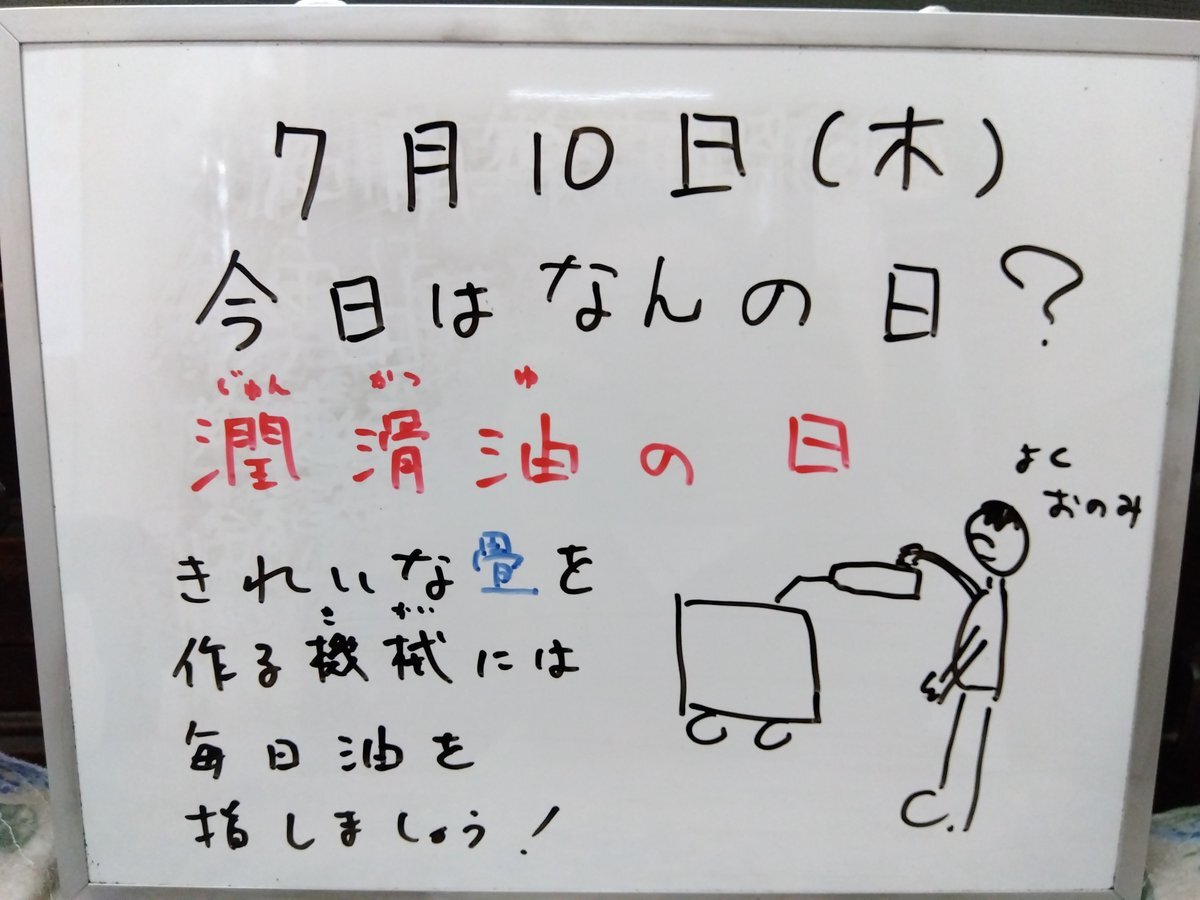 7月10日(木)
今日はなんの日?
じゅん かつ ゆ
潤滑油の日
よく
おのみ
きれいな畳を
き かい
作る機械には
毎日油を
指しましょう!